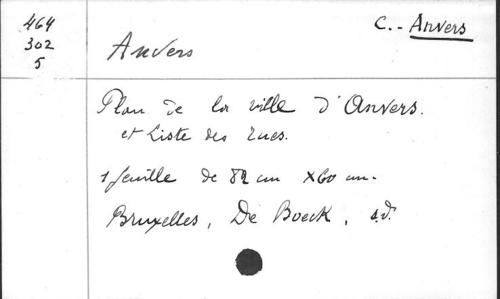 464
302
5
C. - Anvers
Anvers
Plan de la ville d'Anvers.
et Liste des rues.
1 feuille de 82 cm x 60 cm.
Bruxelles, De Boeck, s.d.